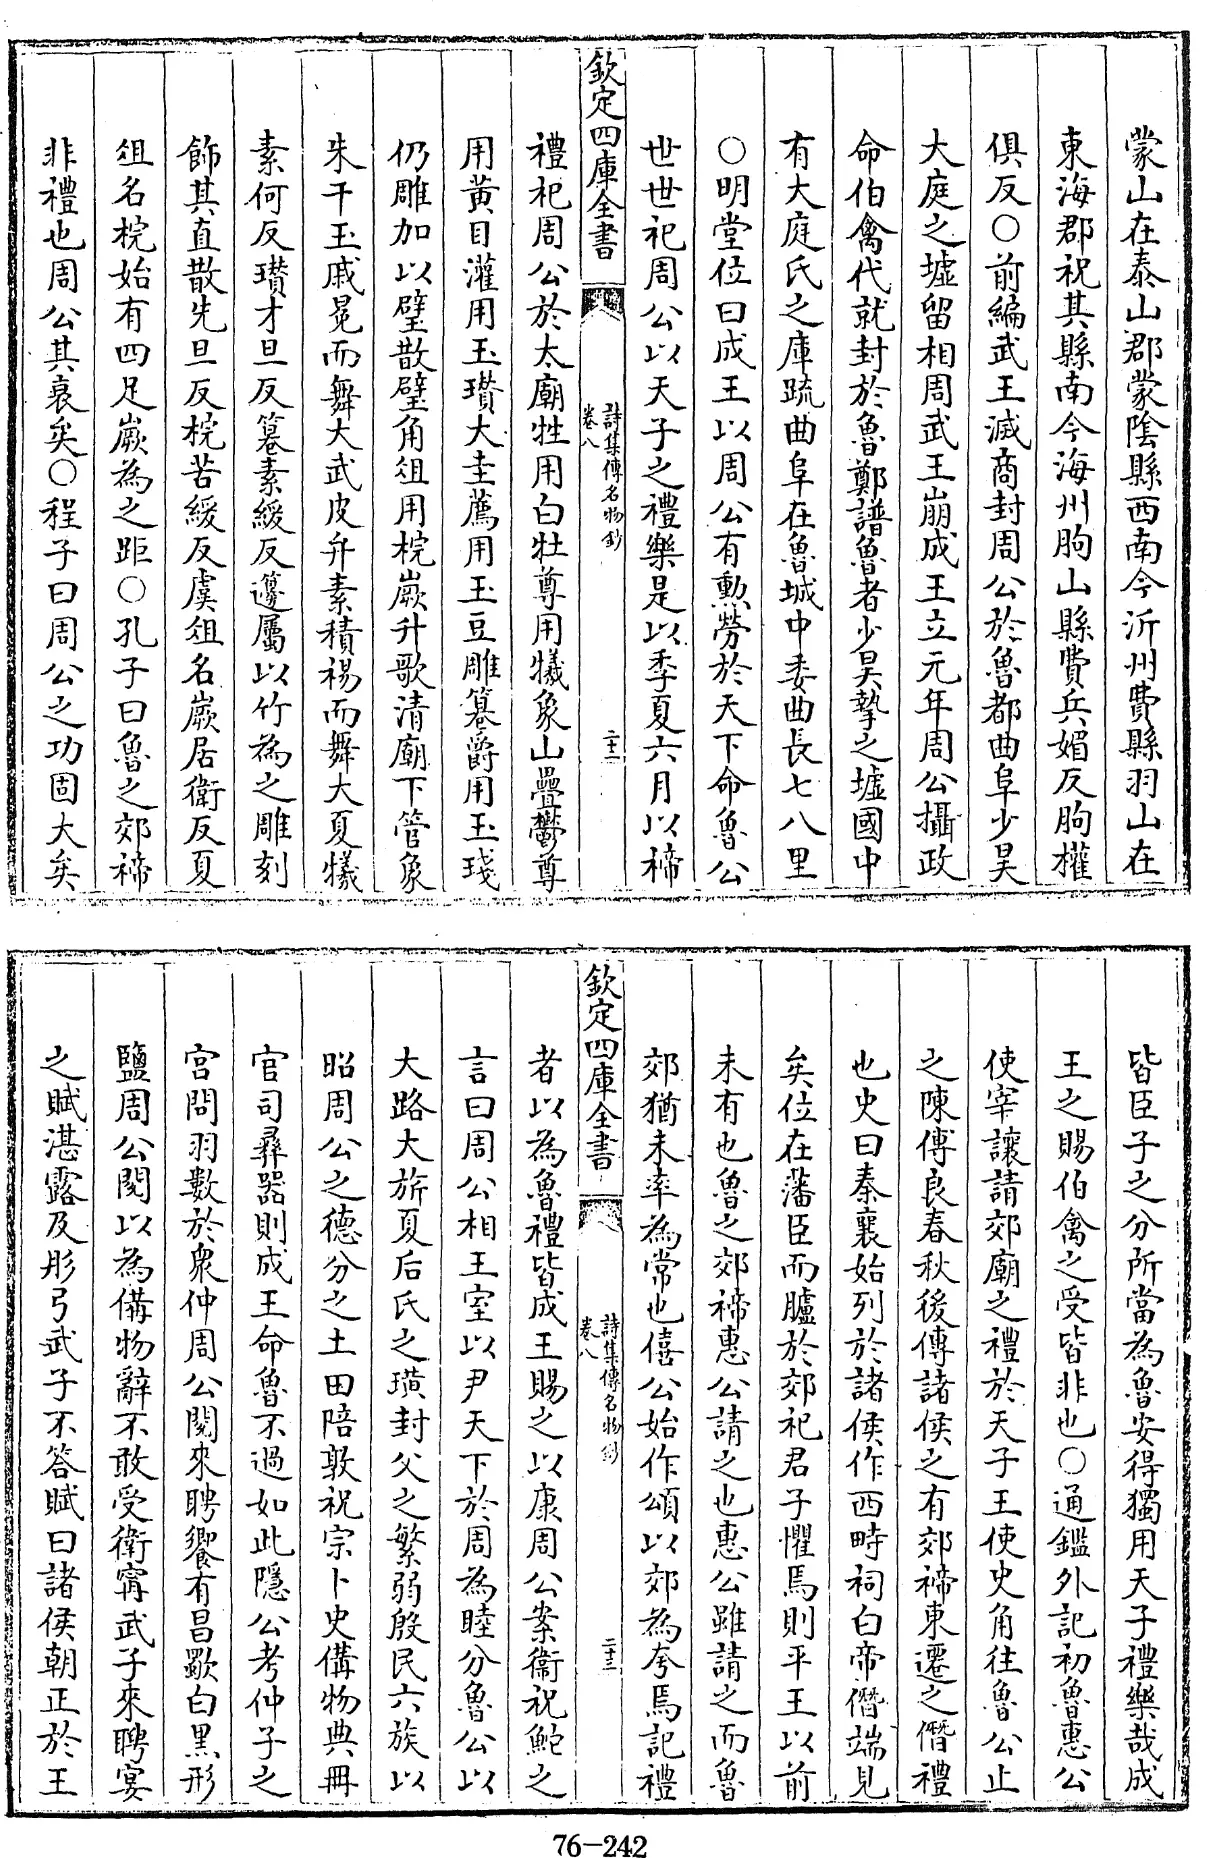 蒙山在泰山郡蒙陰縣西南今沂州費縣羽山在
東海郡祝其縣南今海州朐山縣費兵媚反朐權
俱反○前編武王滅商封周公於魯都曲阜少昊
大庭之墟留相周武王崩成王立元年周公攝政
命伯禽代就封於魯鄭譜魯者少昊摯之墟國中
有大庭氏之庫䟽曲阜在魯城中委曲長七八里
○明堂位曰成王以周公有勲勞於天下命魯公
世世祀周公以天子之禮樂是以季夏六月以禘
欽定四庫全書
詩集傳名物鈔
卷八
二十二
禮祀周公於太廟牲用白牡尊用犧象山罍鬱尊
用黃目灌用玉瓚大圭薦用玉豆雕篹爵用玉琖
仍雕加以璧散璧角俎用梡嶡升歌清廟下管象
朱干玉戚冕而舞大武皮弁素積裼而舞大夏犧
素何反瓚才旦反篹素緩反籩屬以竹為之雕刻
飾其直散先旦反梡苦緩反虞俎名嶡居衛反夏
俎名梡始有四足嶡為之距○孔子曰魯之郊禘
非禮也周公其衰矣○程子曰周公之功固大矣
皆臣子之分所當為魯安得獨用天子禮樂哉成
王之賜伯禽之受皆非也○通鑑外記初魯惠公
使宰讓請郊廟之禮於天子王使史角往魯公止
之陳傅良春秋後傳諸侯之有郊禘東遷之僭禮
也史曰秦襄始列於諸侯作西畤祠白帝僭端見
矣位在藩臣而臚於郊祀君子懼焉則平王以前
未有也魯之郊禘惠公請之也惠公雖請之而魯
郊猶未率為常也僖公始作頌以郊為夸焉記禮
欽定四庫全書
詩集傳名物鈔
卷八
二十三
者以為魯禮皆成王賜之以康周公案衞祝鮀之
言曰周公相王室以尹天下於周為睦分魯公以
大路大旂夏后氏之璜封父之繁弱殷民六族以
昭周公之德分之土田陪敦祝宗卜史備物典冊
官司彝器則成王命魯不過如此隱公考仲子之
宮問羽數於衆仲周公閱來聘饗有昌歜白黑形
鹽周公閱以為備物辭不敢受衛甯武子來聘宴
之賦湛露及彤弓武子不答賦曰諸侯朝正於王
76-242